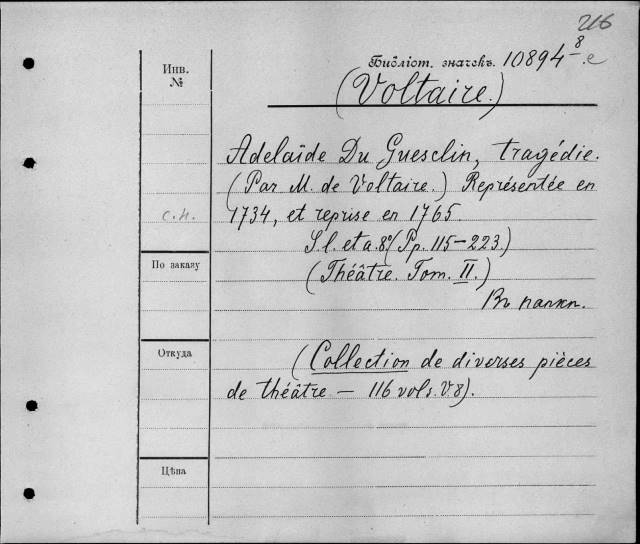 216
Инв.
№
Библіот. значекъ. 10894 8/e
(Voltaire.)
Adelaïde Du Guesclin, tragédie.
(Par M. de Voltaire.) Représentée en
с.н. 1734, et reprise en 1765.
S. l. et a. 8º (Pp. 115–223.)
По заказу
(Théâtre. Tom. II.)
Въ папкѣ.
Откуда
(Collection de diverses pièces
de théâtre – 116 vols. V. 8).
Цѣна